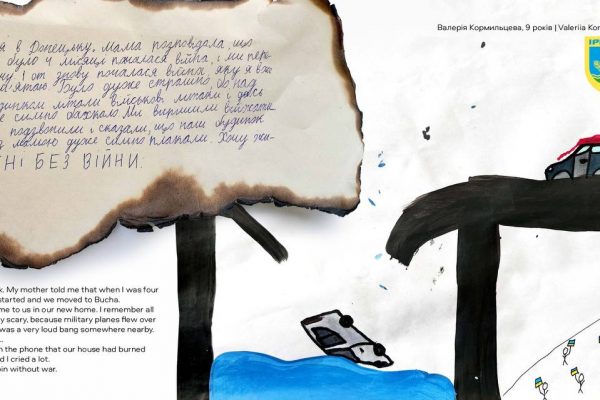 Валерія Кормильцева, 9 років | Valeriia Kor
ІРП
я в Донецьку. Мама розповідала, що
було 4 місяці почалася війна, і ми пере-
ну. І от знову почалася війна, яку я вже
ятаю. Було дуже страшно, бо над
динком літали військові літаки і десь
е сильно бахкало. Ми вирішили
подзвонили і сказали, що наш будинок
з мамою дуже сильно плакали. Хочу жи-
НІ БЕЗ ВІЙНИ.
k. My mother told me that when I was four
started and we moved to Bucha.
me to us in our new home. I remember all
y scary, because military planes flew over
was a very loud bang somewhere nearby.
...
n the phone that our house had burned
d I cried a lot.
pin without war.